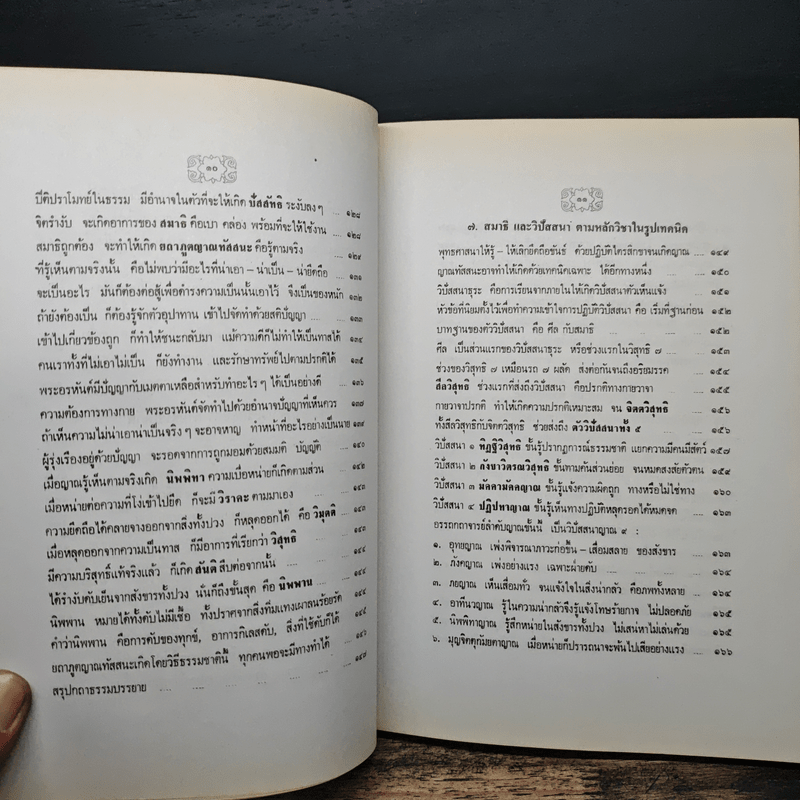 ๑๐
ปีติปราโมทย์ในธรรม มีอำนาจในตัวที่จะให้เกิด ปัสสัทธิ ระงับลงๆ .... ๑๒๘
จิตรำงับ จะเกิดอาการของ สมาธิ คือเบา คล่อง พร้อมที่จะให้ใช้งาน .... ๑๒๘
สมาธิถูกต้อง จะทำให้เกิด ยถาภูตญาณทัสสนะ คือรู้ตามจริง .... ๑๒๙
ที่รู้เห็นตามจริงนั้น คือไม่พบว่ามีอะไรที่น่าเอา – น่าเป็น – น่ายึดถือ
จะเป็นอะไร มันก็ต้องต่อสู้เพื่อดำรงความเป็นนั้นเอาไว้ จึงเป็นของหนัก ๑๓๒
ถ้ายังต้องเป็น ก็ต้องรู้จักตัวอุปาทาน เข้าไปจัดทำด้วยสติปัญญา .... ๑๓๓
เข้าไปเกี่ยวข้องถูก ก็ทำให้ชนะกลับมา แม้ความดีก็ไม่ทำให้เป็นทาสได้
คนเราทั้งที่ไม่เอาไม่เป็น ก็ยังทำงาน และรักษาทรัพย์ไปตามปรกติได้ ๑๓๕
พระอรหันต์มีปัญญากับเมตตาเหลือสำหรับทำอะไรๆ ได้เป็นอย่างดี .... ๑๓๖
ความต้องการทางกาย พระอรหันต์จัดทำไปด้วยอำนาจปัญญาที่เห็นควร ๑๓๗
ถ้าเห็นความไม่น่าเอาน่าเป็นจริงๆ จะอาจหาญ ทำหน้าที่อะไรอย่างเป็นนาย ๑๓๙
ผู้รุ่งเรืองอยู่ด้วยปัญญา จะรอดจากการถูกมอมด้วยสมมติ บัญญัติ .... ๑๔๐
เมื่อญาณรู้เห็นตามจริงเกิด นิพพิทา ความเบื่อหน่ายก็เกิดตามส่วน .... ๑๔๒
เมื่อหน่ายต่อความที่โง่เข้าไปยึด ก็จะมี วิราคะ ตามมาเอง .... ๑๔๓
ความยึดถือได้คลายจางออกจากสิ่งทั้งปวง ก็หลุดออกได้ คือ วิมุตติ .... ๑๔๓
เมื่อหลุดออกจากความเป็นทาส ก็มีอาการที่เรียกว่า วิสุทธิ .... ๑๔๓
มีความบริสุทธิ์แท้จริงแล้ว ก็เกิด สันติ สืบต่อจากนั้น .... ๑๔๔
ได้รำงับดับเย็นจากสังขารทั้งปวง นั่นก็ถึงขั้นสุด คือ นิพพาน .... ๑๔๔
นิพพาน หมายได้ทั้งดับไม่มีเชื้อ ทั้งปราศจากสิ่งทิ่มแทงเผาลนร้อยรัด ๑๔๕
คำว่านิพพาน คือการดับของทุกข์, อาการกิเลสดับ, สิ่งที่ใช้ดับก็ได้ ๑๔๕
ยถาภูตญาณทัสสนะเกิดโดยวิธีธรรมชาตินี้ ทุกคนพอจะมีทางทำได้ .... ๑๔๖
สรุปกถาธรรมบรรยาย .... .... .... .... .... ๑๔๗
๑๑
๗. สมาธิ และวิปัสสนา ตามหลักวิชาในรูปเทคนิค
พุทธศาสนาให้รู้ – ให้เลิกยึดถือขันธ์ ด้วยปฏิบัติไตรสิกขาจนเกิดญาณ .... ๑๔๙
ญาณทัสสนะอาจทำให้เกิดด้วยเทคนิคเฉพาะ ได้อีกทางหนึ่ง .... ๑๕๐
วิปัสสนาธุระ คือการเรียนจากภายในให้เกิดวิปัสสนาตัวเห็นแจ้ง .... ๑๕๑
หัวข้อที่นิยมตั้งไว้เพื่อทำความเข้าใจการปฏิบัติวิปัสสนา คือ เริ่มที่ฐานก่อน
บาทฐานของตัววิปัสสนา คือ ศีล กับสมาธิ .... .... ๑๕๒
ศีล เป็นส่วนแรกของวิปัสสนาธุระ หรือช่วงแรกในวิสุทธิ ๗ .... ๑๕๓
ช่วงของวิสุทธิ ๗ เหมือนรถ ๗ ผลัด ส่งต่อกันจนถึงอริยมรรค .... ๑๕๔
สีลวิสุทธิ ช่วงแรกที่ส่งถึงวิปัสสนา คือปรกติทางกายวาจา .... ๑๕๕
กายวาจาปรกติ ทำให้เกิดความปรกติเหมาะสม จน จิตตวิสุทธิ .... ๑๕๖
ทั้งสีลวิสุทธิกับจิตตวิสุทธิ ช่วยส่งถึง ตัววิปัสสนาทั้ง ๕
วิปัสสนา ๑ ทิฏฐิวิสุทธิ ขั้นรู้ปรากฏการณ์ธรรมชาติ แยกความมีคนมีสัตว์ ๑๕๗
วิปัสสนา ๒ กังขาวิตรณวิสุทธิ ขั้นทามค้นส่วนย่อย จนหมดสงสัยตัวตน ๑๕๙
วิปัสสนา ๓ มัคคามัคคญาณ ขั้นรู้แจ้งความผิดถูก ทางหรือไม่ใช่ทาง ๑๖๐
วิปัสสนา ๔ ปฏิปทาญาณ ขั้นรู้เห็นทางปฏิบัติหลุดรอดได้หมดจด
อรรถกถาจารย์ลำดับญาณขั้นนี้ เป็นวิปัสสนาญาณ ๙ :
๑. อุทยญาณ เพ่งพิจารณาภาวะก่อขึ้น – เสื่อมสลาย ของสังขาร .... ๑๖๓
๒. ภังคญาณ เพ่งอย่างแรง เฉพาะฝ่ายดับ .... .... ๑๖๓
๓. ภยญาณ เห็นเสื่อมทั่ว จนแจ้งใจในสิ่งน่ากลัว คือภพทั้งหลาย .... ๑๖๔
๔. อาทีนวญาณ รู้ในความน่ากลัวจึงรู้แจ้งโทษร้ายกาจ ไม่ปลอดภัย .... ๑๖๕
๕. นิพพิทาญาณ รู้สึกหน่ายในสังขารทั้งปวง ไม่เสน่หาไม่เล่นด้วย .... ๑๖๕
๖. มุญจิตตุกัมยตาญาณ เมื่อหน่ายก็ปรารถนาจะพ้นไปเสียอย่างแรง .... ๑๖๖